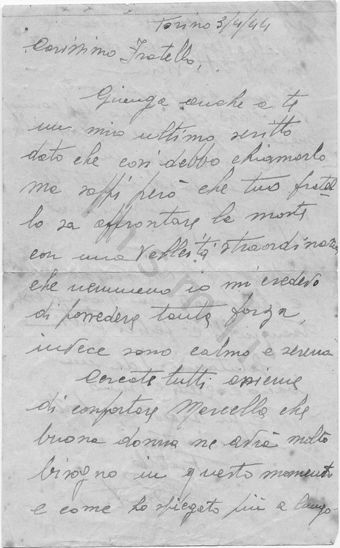 Torino 3/4/44
Carissimo Fratello,
Giunga anche a te
un mio ultimo scritto
dato che così debbo chiamarlo
ma sappi però che tuo fratel-
lo sa affrontare la morte
con una straordinaria
che nemmeno io mi credevo
di possedere tanta forza,
invece sono calmo e sereno
Cercate tutti assieme
di confortare Marcella che
buona donna ne avrà molto
bisogno in questo momento
e come ho spiegato più a lungo